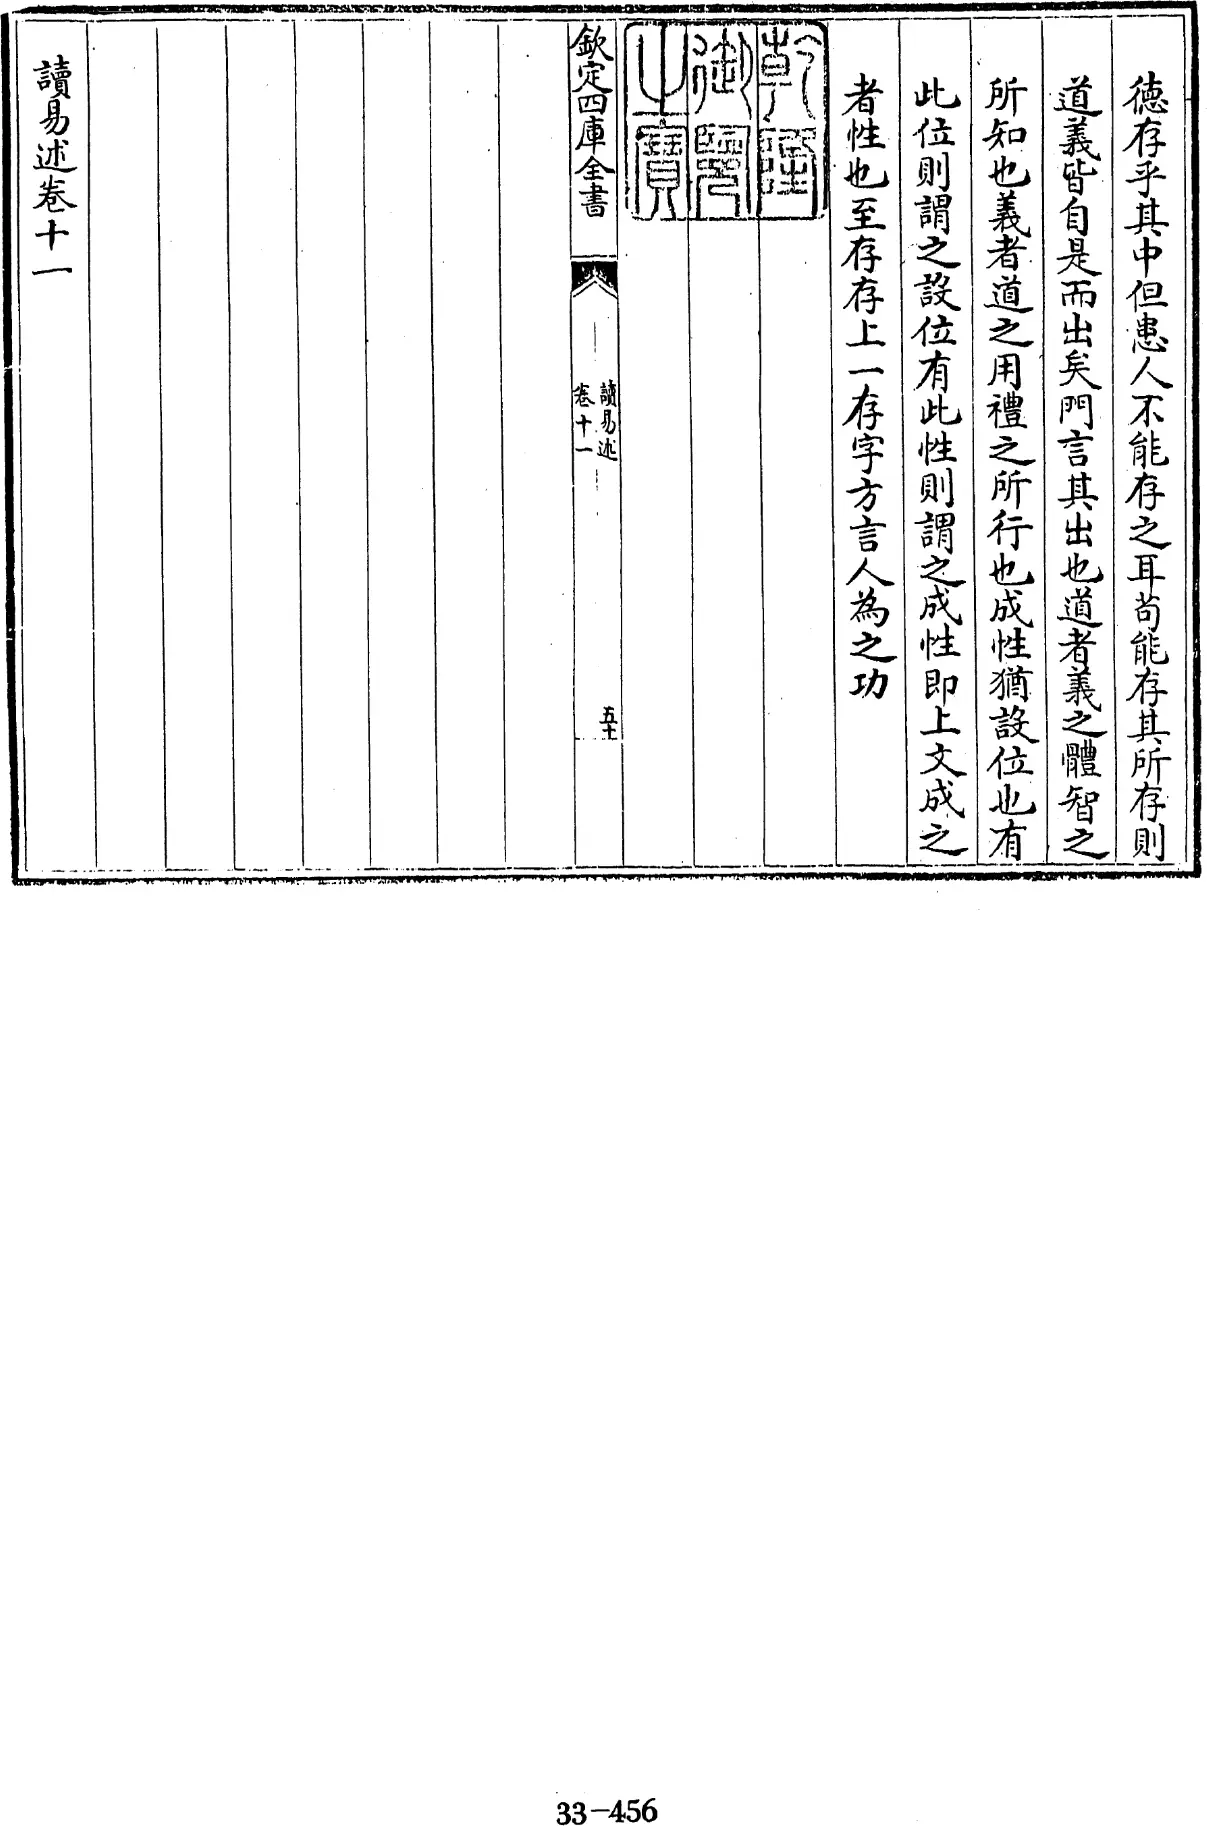 德存乎其中但患人不能存之耳苟能存其所存則
道義皆自是而出矣門言其出也道者義之體智之
所知也義者道之用禮之所行也成性猶設位也有
此位則謂之設位有此性則謂之成性即上文成之
者性也至存存上一存字方言人為之功
乾隆
御覽
之寶
欽定四庫全書
讀易述
卷十一
五十
讀易述卷十一
33-456